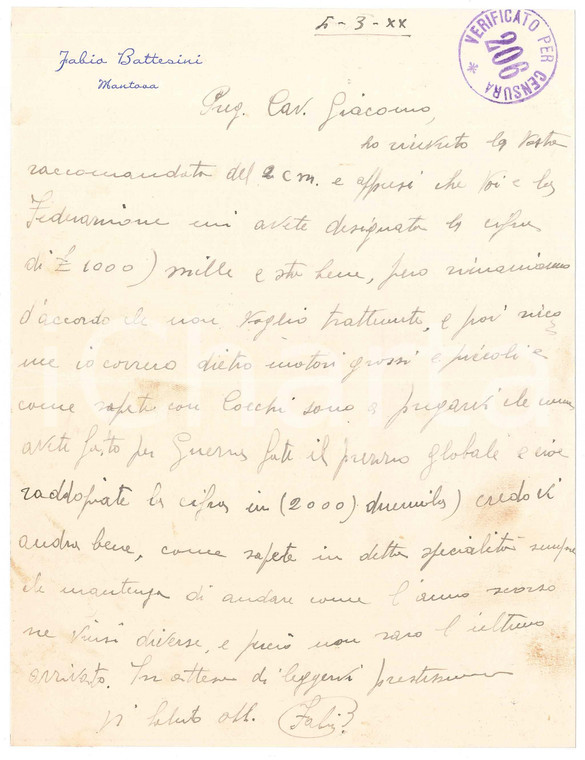 5-3-XX
VERIFICATO PER CENSURA
206
Fabio Battesini
Mantova
Preg. Cav. Giacomo,
ho ricevuto la Vostra
raccomandata del 2 c m. e appresi che Voi e la
Federazione mi avete designato la cifra
di £ 1000) mille e sta bene, però rimaniamo
d'accordo che non voglio trattenute, e poi sico
me io correrò dietro motori grossi e piccoli e
come sapete con Coechi sono a pregarvi che come
avete fatto per Guerra fate il prezzo globale e cioè
raddoppiate la cifra in (2000) duemila) credo vi
andrà bene, come sapete in detta specialità sempre
che mantenga di andare come l'anno scorso
ne vinsi diverse, e perciò non sarò l'ultimo
arrivato. In attesa di leggervi prestissimo
Vi saluto att. Fabio
iCharta